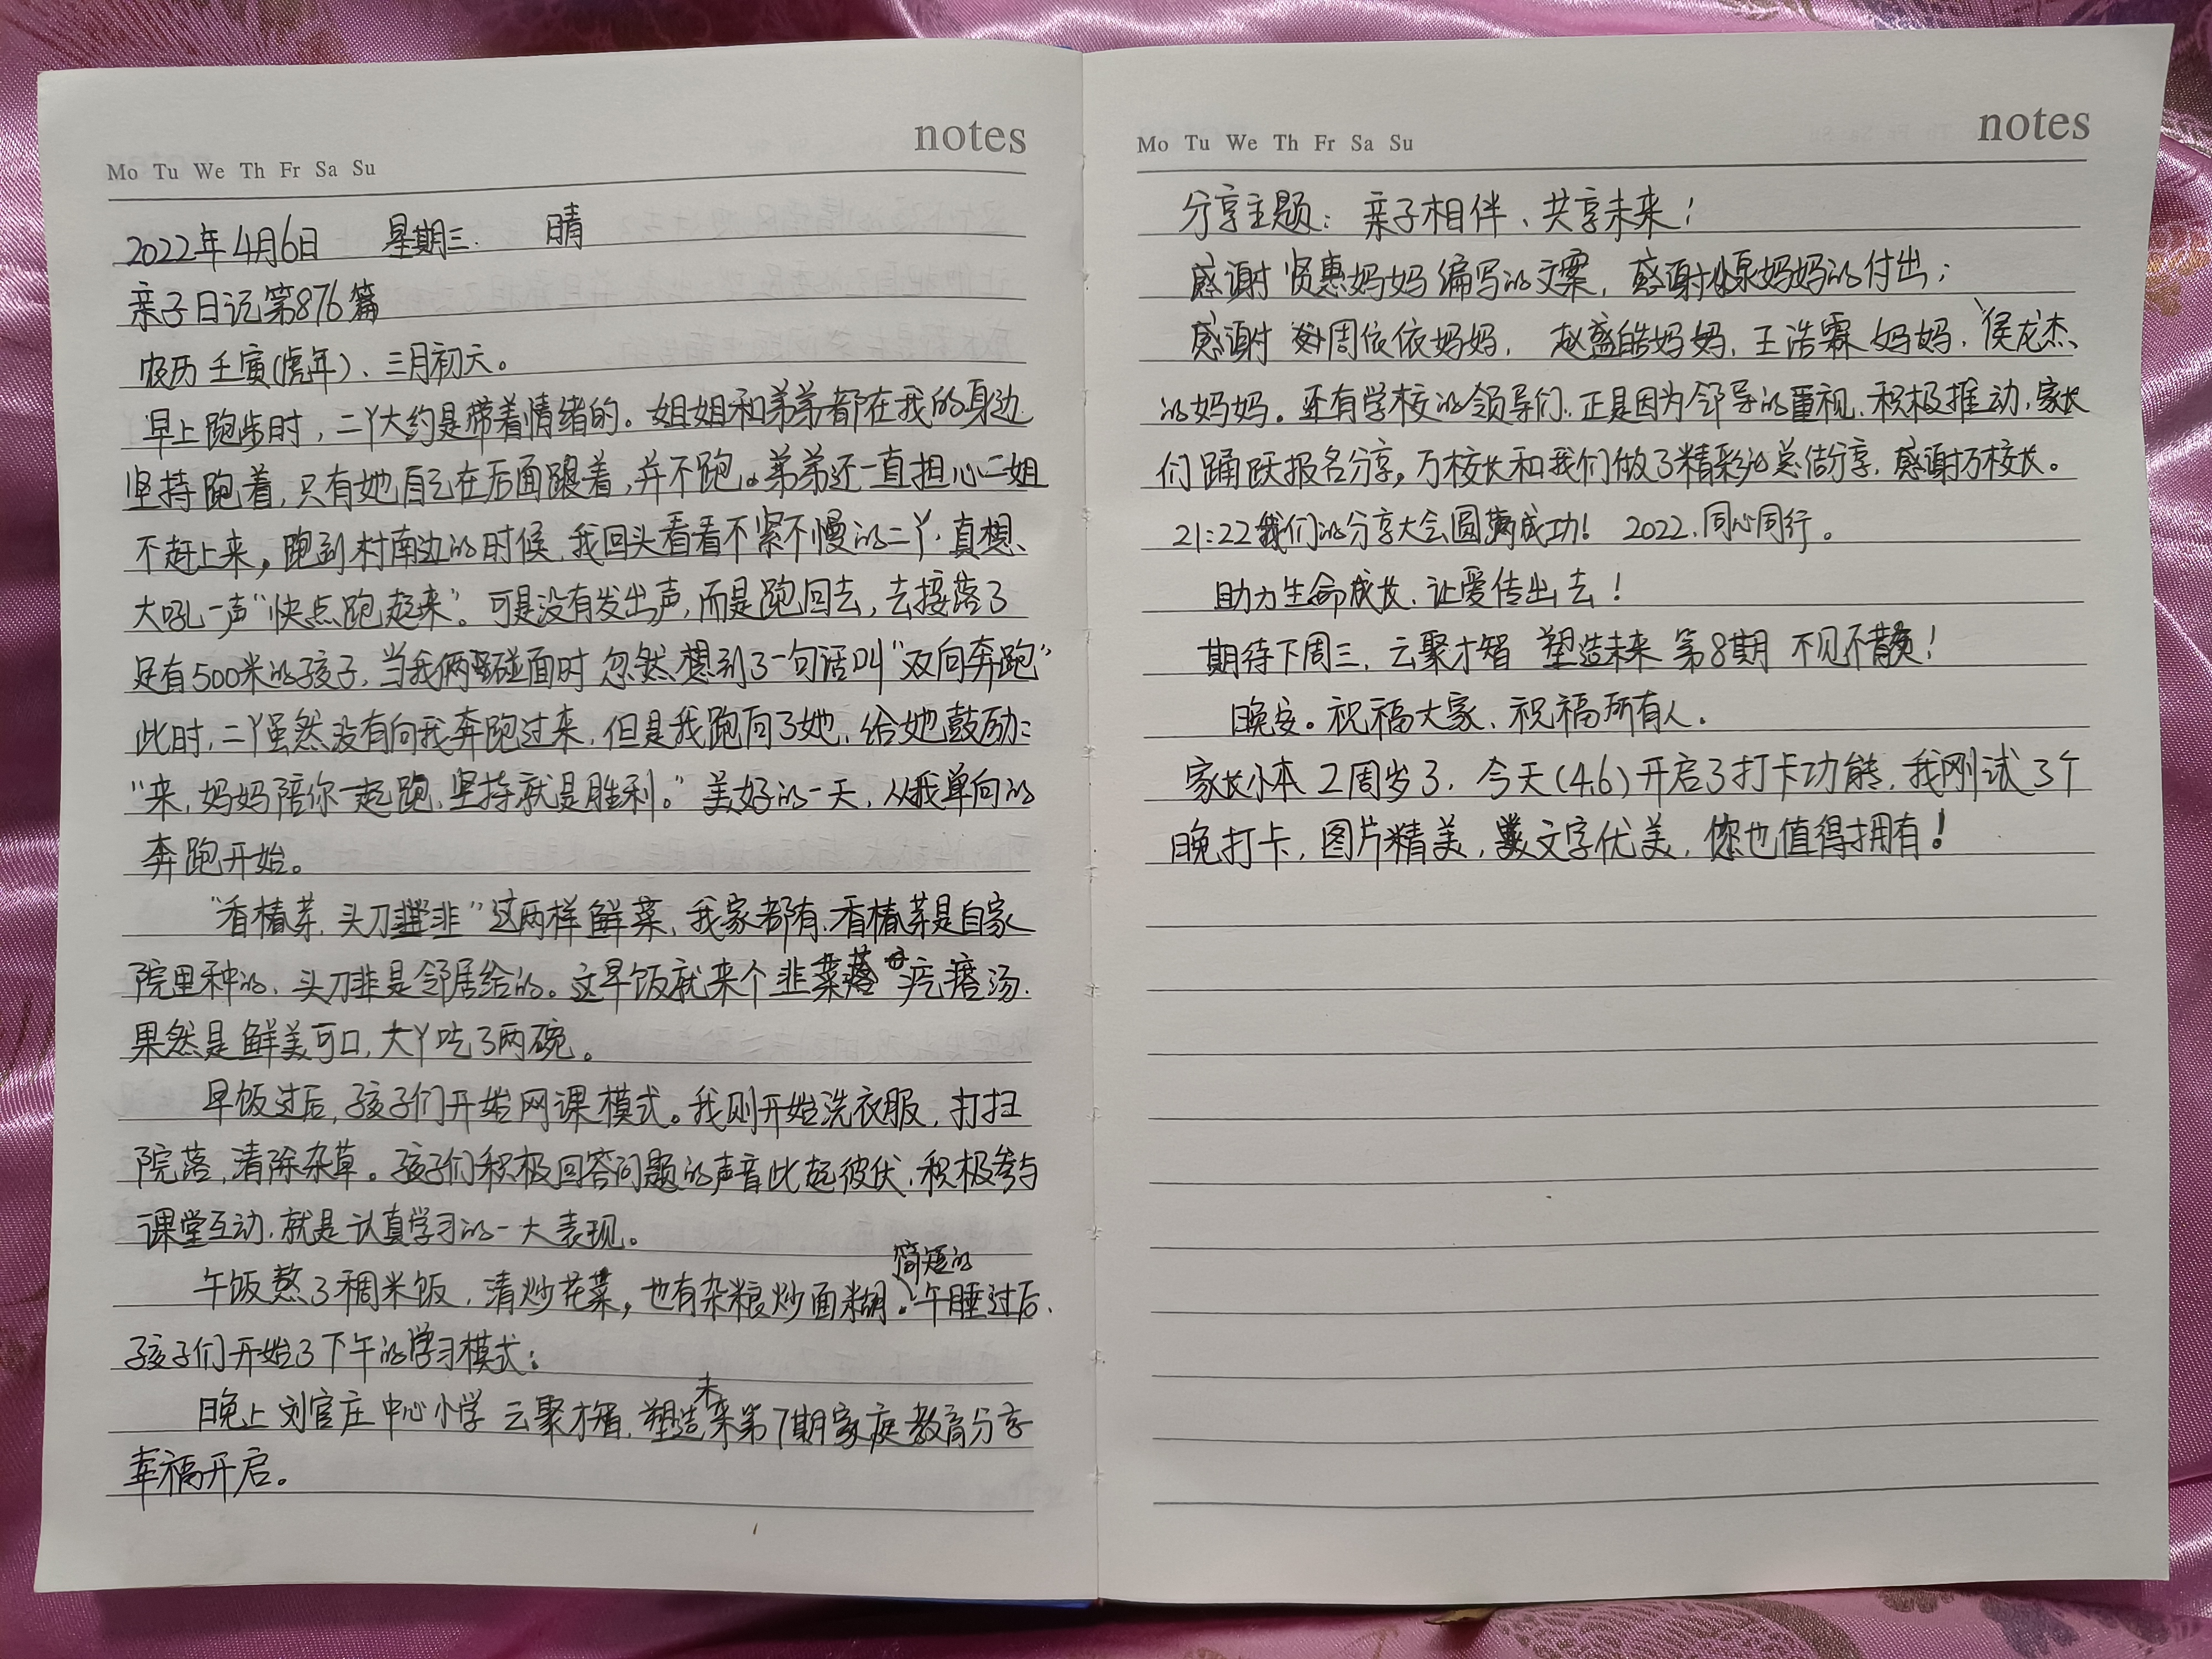 notes
Mo Tu We Th Fr Sa Su
2022年4月6日 星期三. 晴
亲子日记第876篇
农历壬寅(虎年)、三月初六。
早上跑步时,二丫大约是带着情绪的。姐姐和弟弟都在我的身边
坚持跑着,只有她自己在后面跟着,并不跑。弟弟还一直担心二姐
不赶上来。跑到村南边的时候,我回头看看不紧不慢的二丫,真想、
大吼一声“快点跑起来”。可是没有发出声,而是跑回去,去接落了
足有500米的孩子,当我俩碰面时忽然想到了一句话叫“双向奔跑”
此时,二丫虽然没有向我奔跑过来,但是我跑向了她,给她鼓励:
“来,妈妈陪你一起跑,坚持就是胜利。”美好的一天,从我单向的
奔跑开始。
“香椿芽,头刀韭”这两样鲜菜,我家都有,香椿芽是自家
院里种的,头刀韭是邻居给的。这早饭就来个韭菜疙瘩汤.
果然是鲜美可口,大丫吃了两碗。
早饭过后,孩子们开始网课模式。我则开始洗衣服,打扫
院落,清除杂草。孩子们积极回答问题的声音此起彼伏,积极参与
课堂互动,就是认真学习的一大表现。
午饭熬了稠米饭,清炒花菜,也有杂粮炒面糊。简短的午睡过后,
孩子们开始了下午的学习模式;
晚上刘官庄中心小学 云聚才智,塑造未来第7期家庭教育分享
幸福开启。
notes
Mo Tu We Th Fr Sa Su
分享主题:亲子相伴、共享未来!
感谢贤惠妈妈编写的文案,感谢妈妈的付出;
感谢周依依妈妈,赵盛皓妈妈,王浩霖妈妈,侯龙杰、
的妈妈。还有学校的领导们,正是因为领导的重视,积极推动,家长
们踊跃报名分享。万校长和我们做了精彩的总结分享,感谢万校长。
21:22我们的分享大会圆满成功! 2022.同心同行。
助力生命成长,让爱传出去!
期待下周三,云聚才智 塑造未来 第8期 不见不散!
晚安。祝福大家、祝福所有人.
家长小本2周岁了,今天(4.6)开启了打卡功能,我刚试了个
晚打卡,图片精美,文字优美,您也值得拥有!